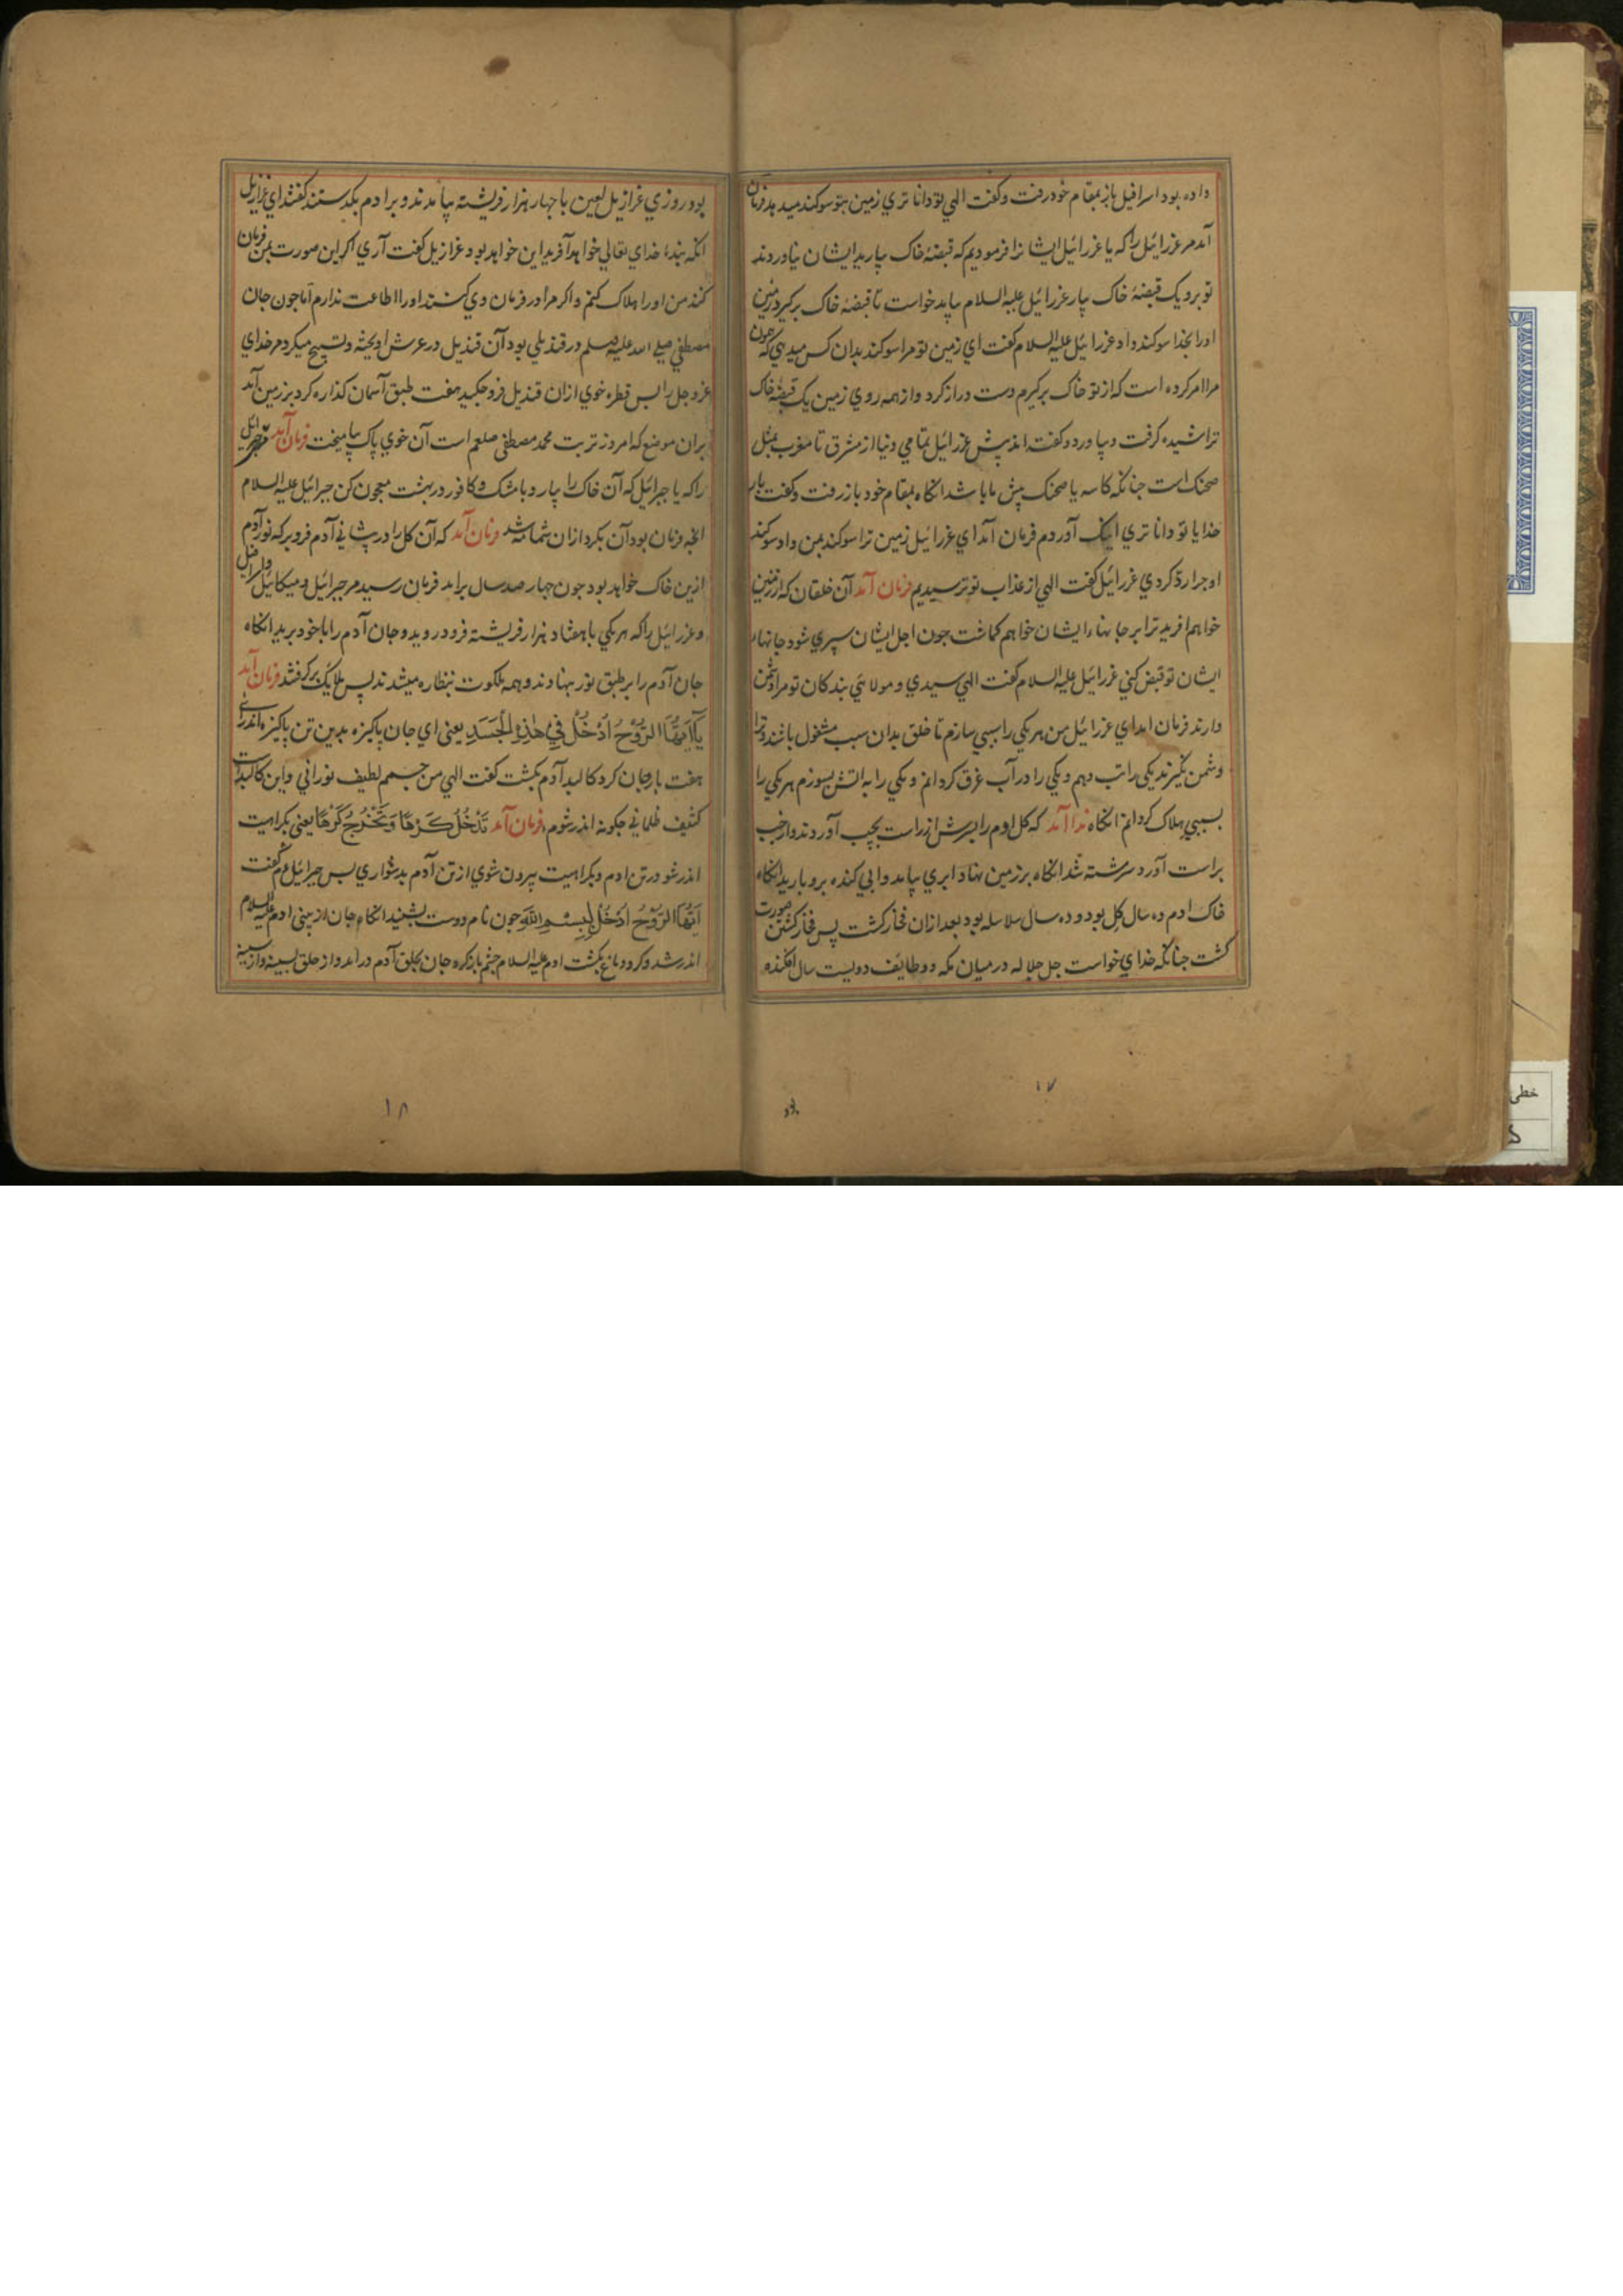 داده بود اسرافیل باز بمقام خود رفت و کفت الهی تو دانا تری زمین بتو سوکند میدهد فرمان
آمد مر عزرائیل را که یا عزرائیل ایشانرا فرمودیم که قبضهٔ خاک بیارید ایشان نیاوردند
تو برو یک قبضهٔ خاک بیار عزرائیل علیه السلام بیامد خواست تا قبضهٔ خاک برکیرد زمین
اورا بخدا سوکند داد عزرائیل علیه السلام کفت ای زمین تو مرا سوکند بدان کس میدهی که
مرا امر کرده است که از تو خاک برکیرم دست دراز کرد و از همه روی زمین یک قبضهٔ خاک
تراشیده کرفت و بیاورد و کفته اند پیش عزرائیل تمامی دنیا از مشرق تا مغرب بمثل
صحنک است جنانکه کاسه یا صحنک پیش ما باشد انکاه بمقام خود باز رفت و کفت بار
خدایا تو دانا تری اینک آوردم فرمان آمد ای عزرائیل زمین ترا سوکند بمن داد سوکند
او جرا رد کردی عزرائیل کفت الهی از عذاب تو ترسیدیم فرمان آمد آن خلقان که از زمین
خواهم افرید ترا بر جانهاء ایشان خواهم کماشت جون اجل ایشان سپری شود جانهاء
ایشان تو قبض کنی عزرائیل علیه السلام کفت الهی سیدی و مولائی بندکان تو مرا دشمن
دارند فرمان امد ای عزرائیل من هر یکی را سببی سازم تا خلق بدان سبب مشغول باشند و ترا
دشمن نکیرند یکی را تب دهم و یکی را در آب غرق کردانم و یکی را به اتش بسوزم هر یکی را
بسببی هلاک کردانم انکاه ندا آمد که کل ادم را بسرش از راست بچپ آوردند و از چپ
براست آورد سرشته شد انکاه بر زمین نهاد ابری بیامد و ابی کنده برو بارید انکاه
خاک ادم ده سال کل بود و ده سال سلاسله بود بعد ازان فخار کشت پس فخار کشتن صورت
کشت جنانکه خدای خواست جل جلاله در میان مکه و طایف دویست سال افکنده
بود
۱۷
بود روزی عزازیل لعین با جهار هزار فریشته بیامدند و بر ادم بکدستند کفتند ای عزازیل
انکه بندهٔ خدای تعالی خواهد آفرید این خواهد بود عزازیل کفت آری اکر این صورت بمن فرمان
کند من اورا هلاک کنم و اکر مرا در فرمان وی کنند اورا اطاعت ندارم اما جون جان
مصطفی صلی الله علیه وسلم در قندیلی بود آن قندیل در عرش اویخته و تسبیح میکرد مر خدای
عزوجل را پس قطره خوی ازان قندیل فرو جکید هفت طبق آسمان کذاره کرد بزمین آمد
بران موضع که امروز تربت محمد مصطفی صلعم است آن خوی پاک بیامیخت فرمان آمد مر جبرائیل
را که یا جبرائیل که آن خاک را بیار و با مشک و کافور در بهشت معجون کن جبرائیل علیه السلام
انجه فرمان بود آن بکرد ازان شمامه شد فرمان آمد که آن کل را در پشانی آدم فرو بر که نور آدم
ازین خاک خواهد بود جون جهار صد سال برامد فرمان رسید مر جبرائیل و میکائیل و اسرافیل
و عزرائیل را که هر یکی با هفتاد هزار فریشته فرود روید و جان آدم را با خود برید انکاه
جان آدم را بر طبق نور نهادند و همه ملکوت بنظاره میشدند پس ملایک برکرفتند فرمان آمد
یَا أَیَّتُهَا الرُّوْحُ اُدْخُلْ فِی هٰذِهِ الْجَسَدِ یعنی ای جان پاکیزه بدین تن پاکیزه اندرای
هفت بار جان کرد کالبد آدم بکشت کفت الهی من جسم لطیف نورانی و این کالبد
کثیف ظلمانی جکونه اندر شوم فرمان آمد تَدْخُلُ کَرْهًا وَتَخْرُجُ کَرْهًا یعنی بکراهیت
اندر شو در تن ادم و بکراهیت بیرون شوی از تن آدم بدشواری پس جبرائیل ع م کفت
اَیَّتُهَا الرَّوْحُ اُدْخُلْ بِسْمِ اللّٰهِ جون نام دوست بشنید انکاه جان از بینی ادم علیه السلام
اندر شد و کرد دماغ بکشت ادم علیه السلام جشم باز کرد جان بحلق آدم درامد و از حلق بسینه و از سینه
۱۸
خطی